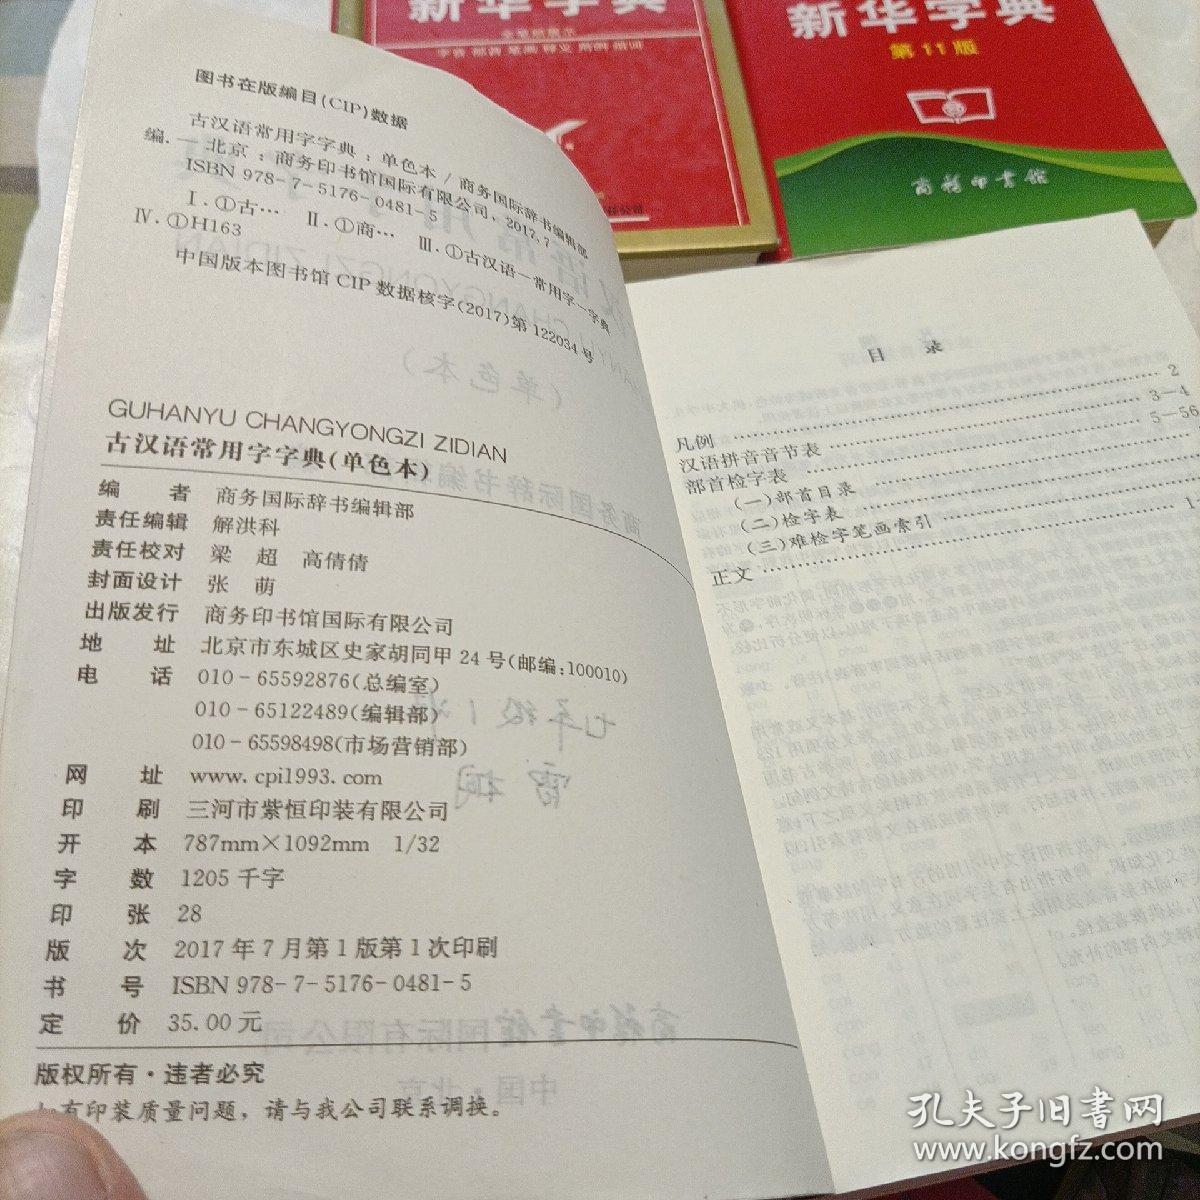 新华字典
全笔顺展示
字音 部首 笔画 释义 用例 组词
新华字典
第11版
商务印书馆
图书在版编目(CIP)数据
古汉语常用字字典：单色本 / 商务国际辞书编辑部
编. — 北京：商务印书馆国际有限公司，2017.7
ISBN 978-7-5176-0481-5
Ⅰ.①古… Ⅱ.①商… Ⅲ.①古汉语—常用字—字典
Ⅳ.①H163
中国版本图书馆 CIP 数据核字(2017)第 122034 号
GUHANYU CHANGYONGZI ZIDIAN
古汉语常用字字典(单色本)
编 者 商务国际辞书编辑部
责任编辑 解洪科
责任校对 梁 超 高倩倩
封面设计 张 萌
出版发行 商务印书馆国际有限公司
地 址 北京市东城区史家胡同甲 24 号(邮编：100010)
电 话 010-65592876(总编室)
010-65122489(编辑部)
010-65598498(市场营销部)
网 址 www.cpi1993.com
印 刷 三河市紫恒印装有限公司
开 本 787mm×1092mm 1/32
字 数 1205 千字
印 张 28
版 次 2017 年 7 月第 1 版第 1 次印刷
书 号 ISBN 978-7-5176-0481-5
定 价 35.00 元
版权所有·违者必究
有印装质量问题，请与我公司联系调换。
目 录
凡例 2
汉语拼音音节表 3—4
部首检字表 5—56
(一)部首目录
(二)检字表
(三)难检字笔画索引
正文 1
孔夫子旧书网
www.kongfz.com